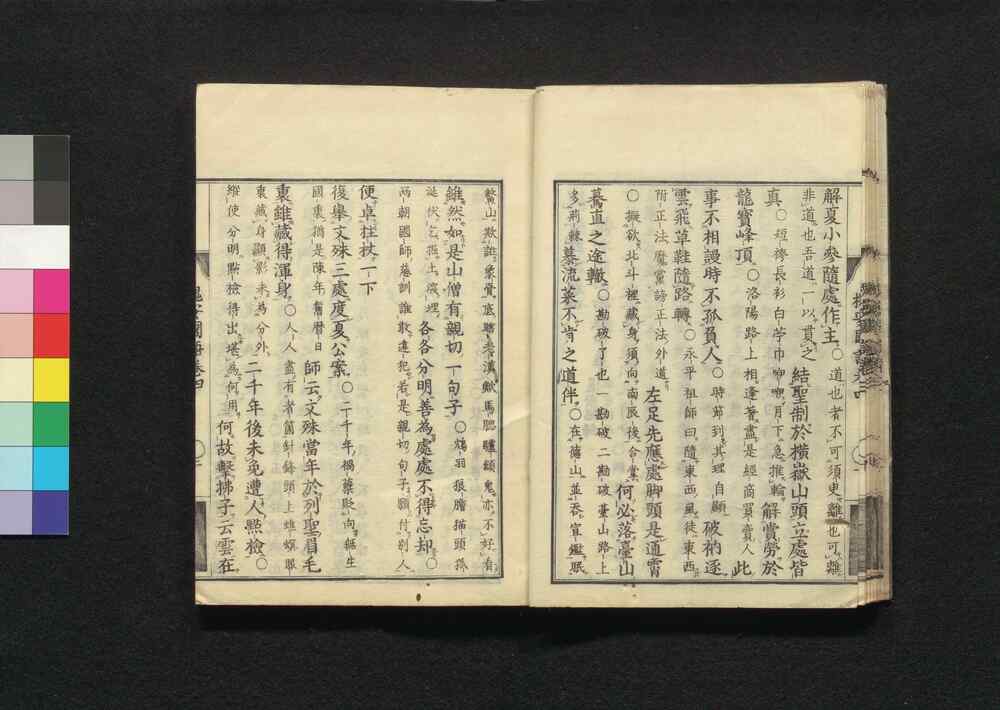 解夏小參隨處作主○道也者不可須臾離也可離
非道也吾道一以貫之結聖制於横嶽山頭立處皆
真○短袴長衫白苧巾咿咿月下急推輪解賞勞於
龍寳峰頂○洛陽路上相逢著盡是經商買賣人此
事不相謾時不孤負人○時節到其理自顯破衲逐
雲飛草鞋隨路轉○永平祖師曰隨東西風徒東西
附正法魔黨謗正法外道左足先應處脚頭是通霄
○擬欲北斗裡藏身須向南辰後合掌何必落臺山
驀直之途轍○勘破了也一勘破二勘破臺山路上
多荊棘慕流葉不肯之道伴○在德山並吞
欺誑衆賓底瞎老漢馬腮驢額鬼亦不好看
雖然如是山僧有親切一句子○鴆羽狼膽猫頭
伏乞掘土深埋各各分明善為處處不得忘却○
兩朝國師落訓誰敢違犯若是親切句子願付別人
便卓柱杖一下
復擧文殊三處度夏公案○二千年榻藥貶向無生
國裏猶是陳年舊暦日師云文殊當年於列聖眉毛
裏雖藏得渾身○人人盡有者箇針鋒頭上
裏藏身顯影未為分外二千年後未免遭人點檢○
縱使分明點檢得出堪為何用何故擊拂子云雲在